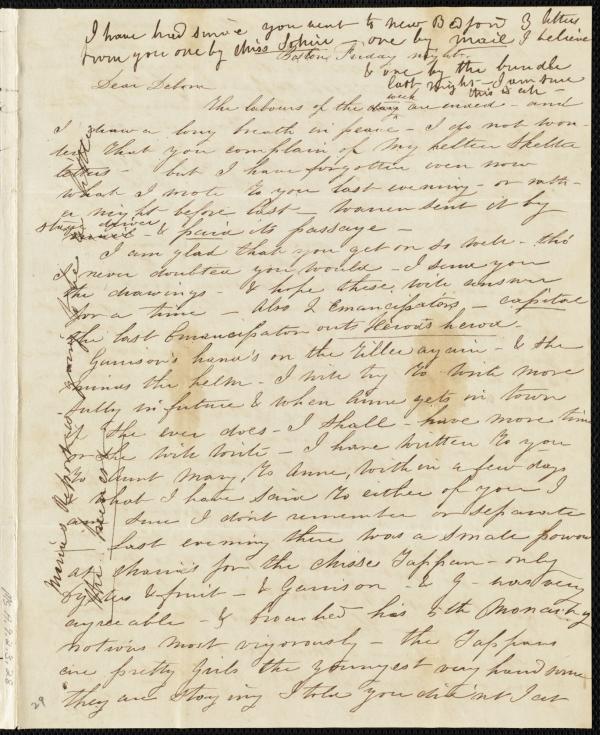 I have had since you went to New Bedford 3 letters
from you one by Miss Sophie - one by mail I believe
& one by the bundle
last night - I am sure
this is all -
Boston Friday night.
Dear Debora
The labours of the day week are ended - and
I draw a long breath in peace - I do not won-
der that you complain of my helter Skelter
letters - but I have forgotten even now
what I wrote to you last evening - or rath-
er night before last - Warren sent it by
stage driver - & paid its passage -
I am glad that you get on so well - tho'
I never doubted you would - I send you
the drawings - & hope these will answer
for a time - Also 2 Emancipators - capital
The last Emancipator outs Herods herod.
Garrison's hand's on the Tiller again - & she
minds the helm - I will try to write more
fully in future & when Anne gets in town
if she ever does - I shall have more time
or she will write - I have written to you
to Aunt Mary, to Anne, within a few days
& what I have said to either of you I
am sure I don't remember or separate
Last evening there was a small
at Maria's for the Misses Tappan - only
oysters & fruit - & Garrison - & G - was very
agreeable - & broached his 5th Monarchy
notions most vigorously - the Tappans
are pretty girls the youngest very handsome
they are staying I told you did n't I at
Maria's Report is
Ms. A.9.2.
29